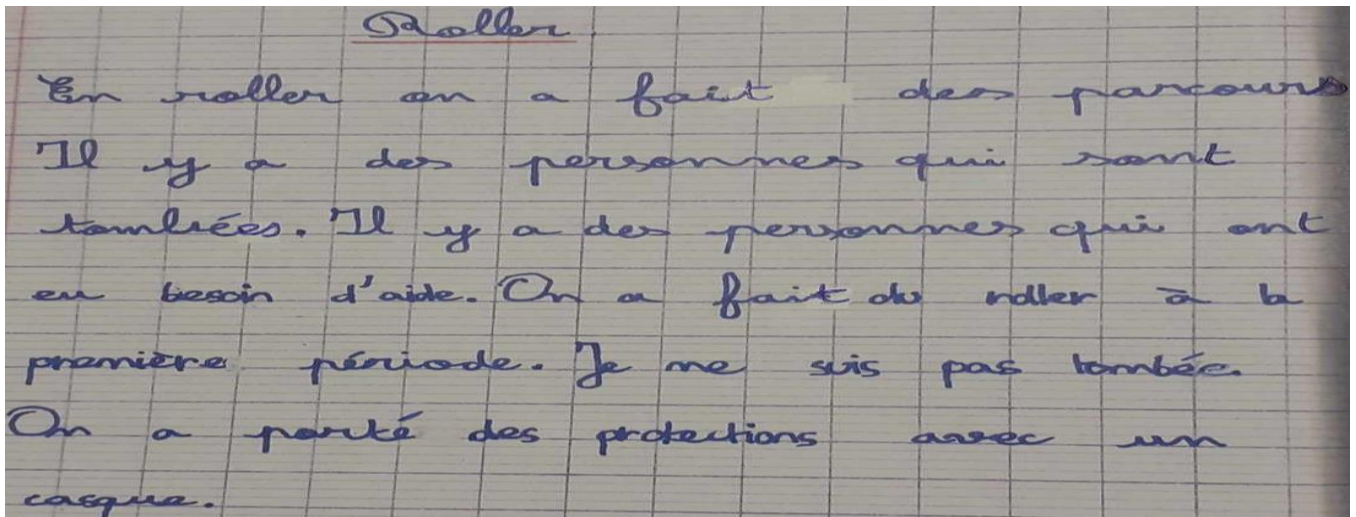 Roller
En roller on a fait des parcours
Il y a des personnes qui sont
tombées. Il y a des personnes qui ont
eu besoin d'aide. On a fait du roller à la
première période. Je me suis pas tombée.
On a porté des protections avec un
casque.